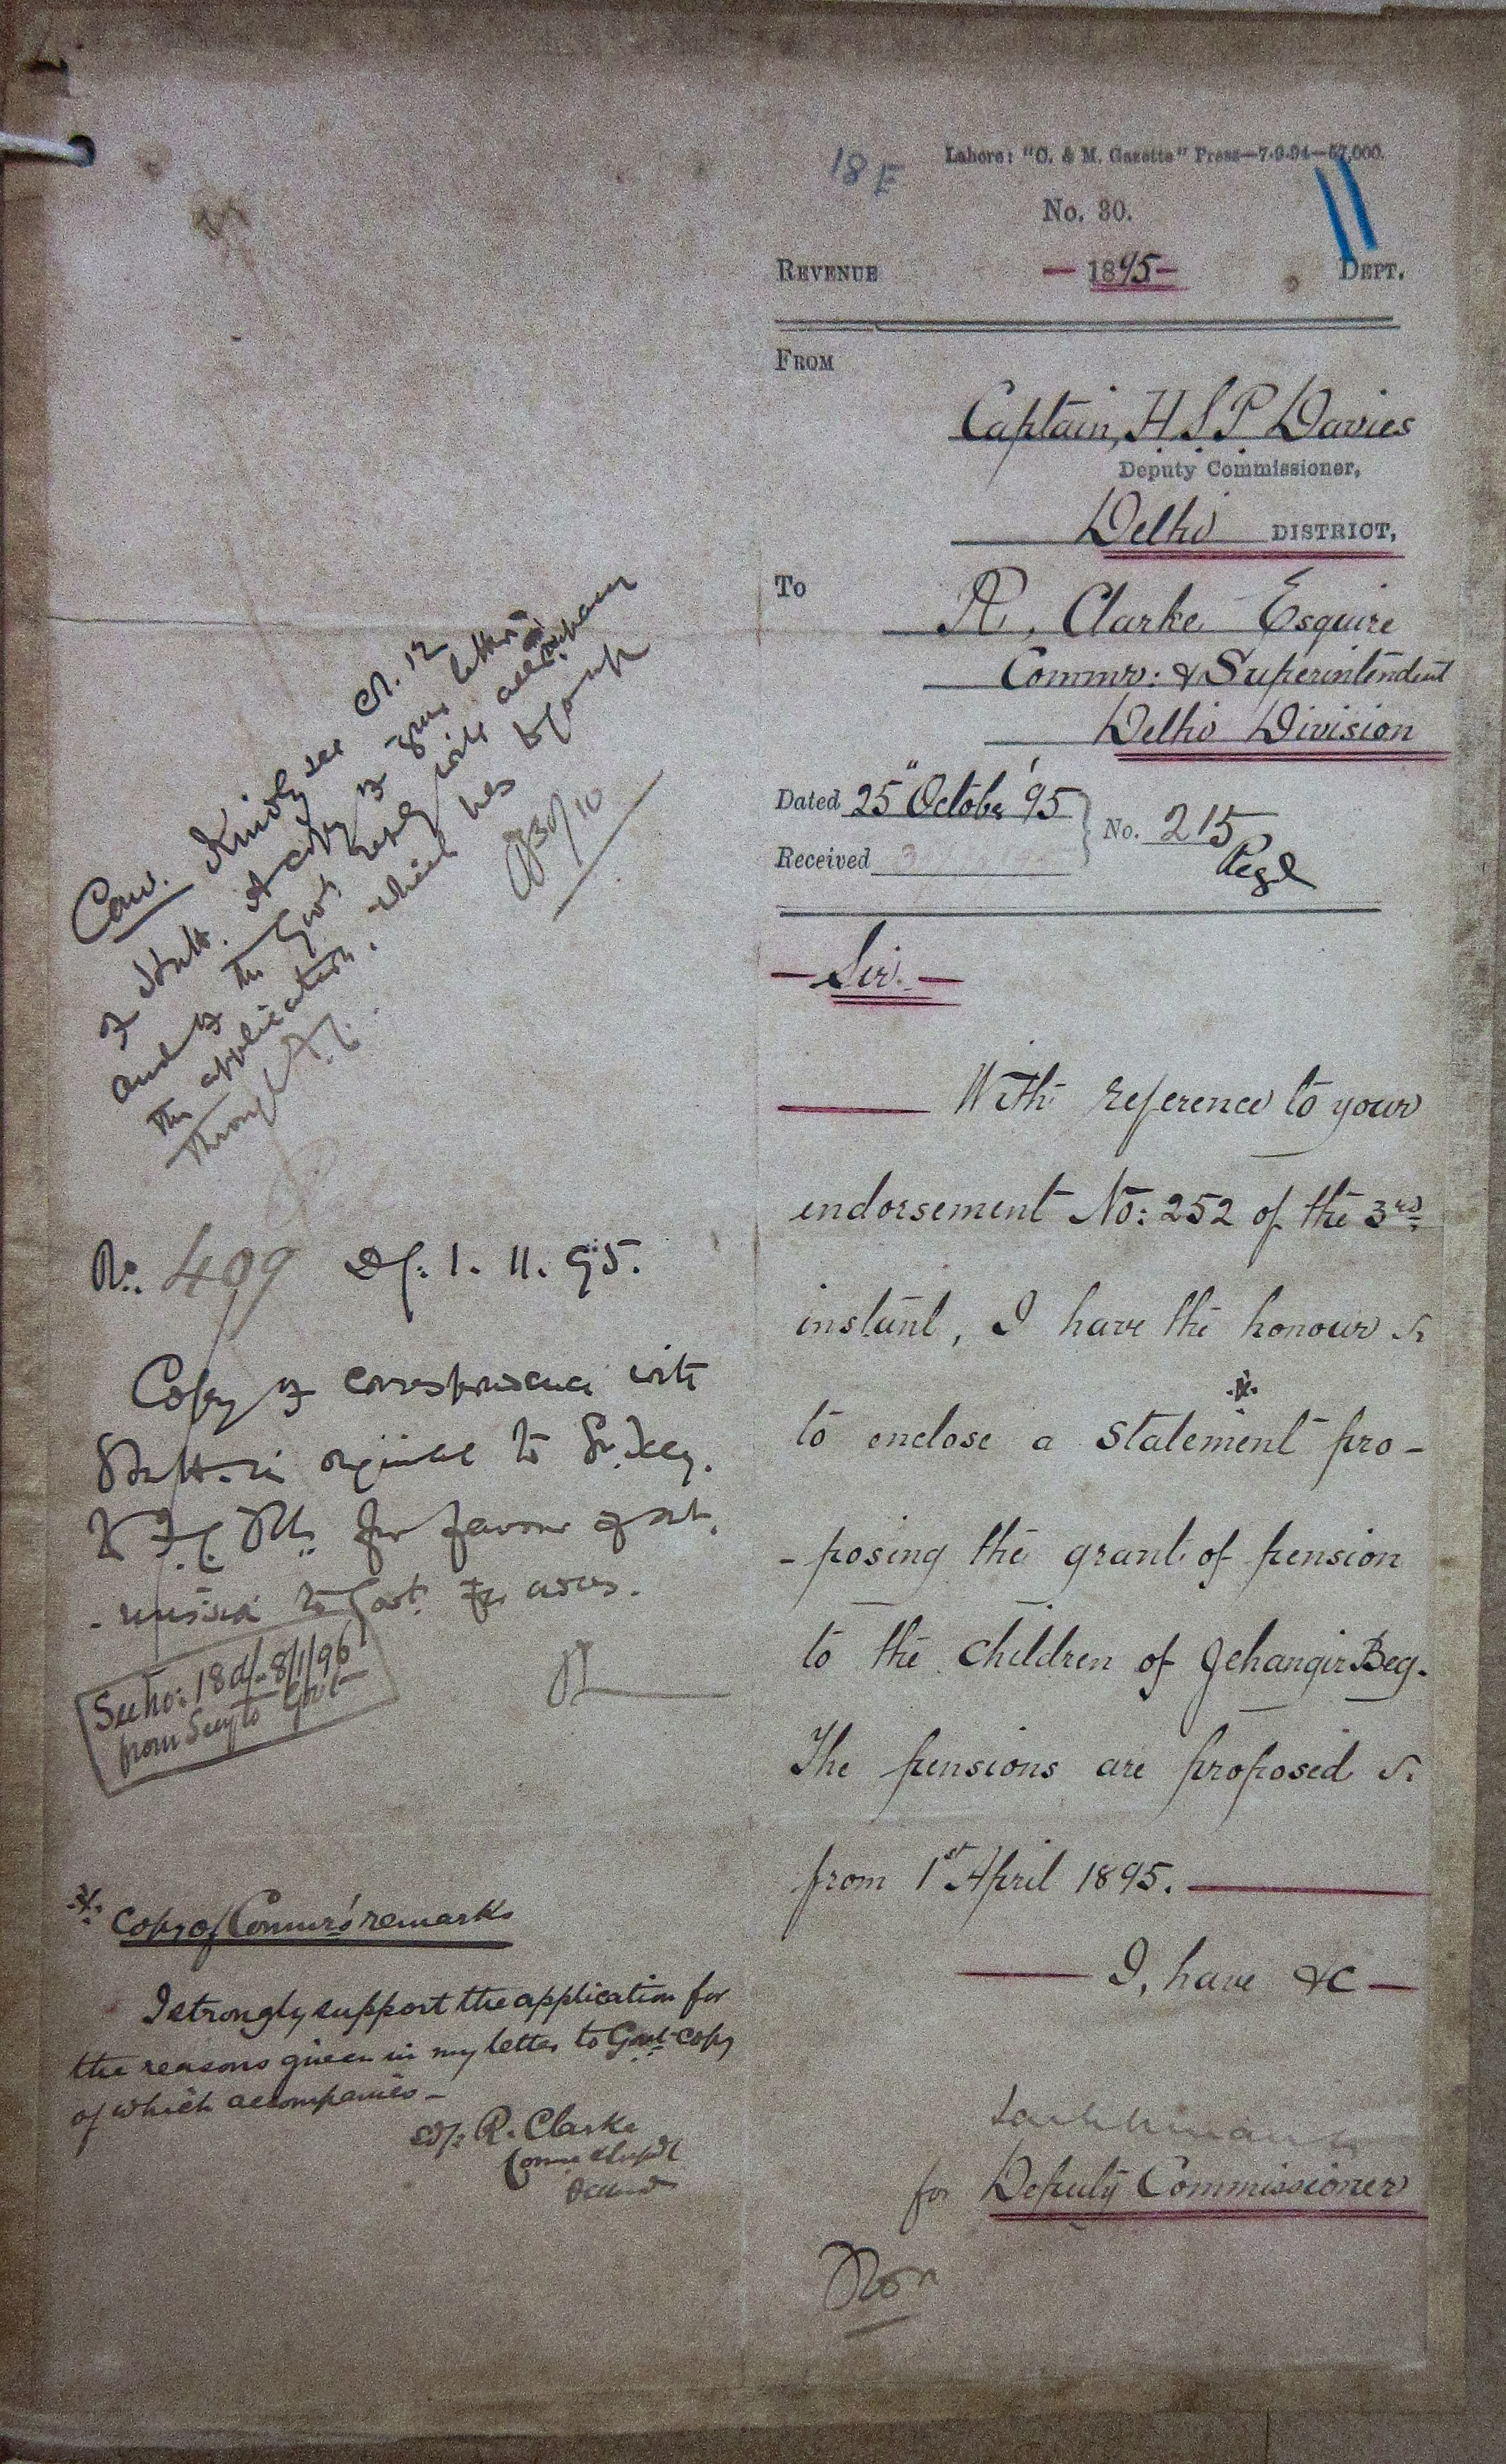 18 E
Lahore: "C. & M. Gazette" Press—7-9-94—57,000.
No. 30.
REVENUE — 1895 — DEPT.
FROM
Captain, H. S. P. Davies
Deputy Commissioner,
Delhi DISTRICT,
To
R. Clarke Esquire
Commr: & Superintendent
Delhi Division
Dated 25" October '95
No. 215
Received
Sir.
With reference to your
endorsement No: 252 of the 3rd
instant, I have the honour
to enclose a statement pro-
-posing the grant of pension
to the children of Jehangir Beg.
The pensions are proposed
from 1st April 1895.
I, have &c
for Deputy Commissioner
Comr. Kindly see Cl. 12
of Statt. A copy of your letter
and of the Govt. reply will accompany
the application, which has to go up
through
30/10
No. 409 Dt: 1. 11. 95.
Copy of correspondence with
Statt. in original to
for favour of sub.
-mission to Govt. for orders.
See No: 18 d/- 8/1/96
from Secy to Govt
Copy of Commr's remarks
I strongly support the application for
the reasons given in my letter to Govt copy
of which accompanies -
Sd/: R. Clarke
Commr & Supdt